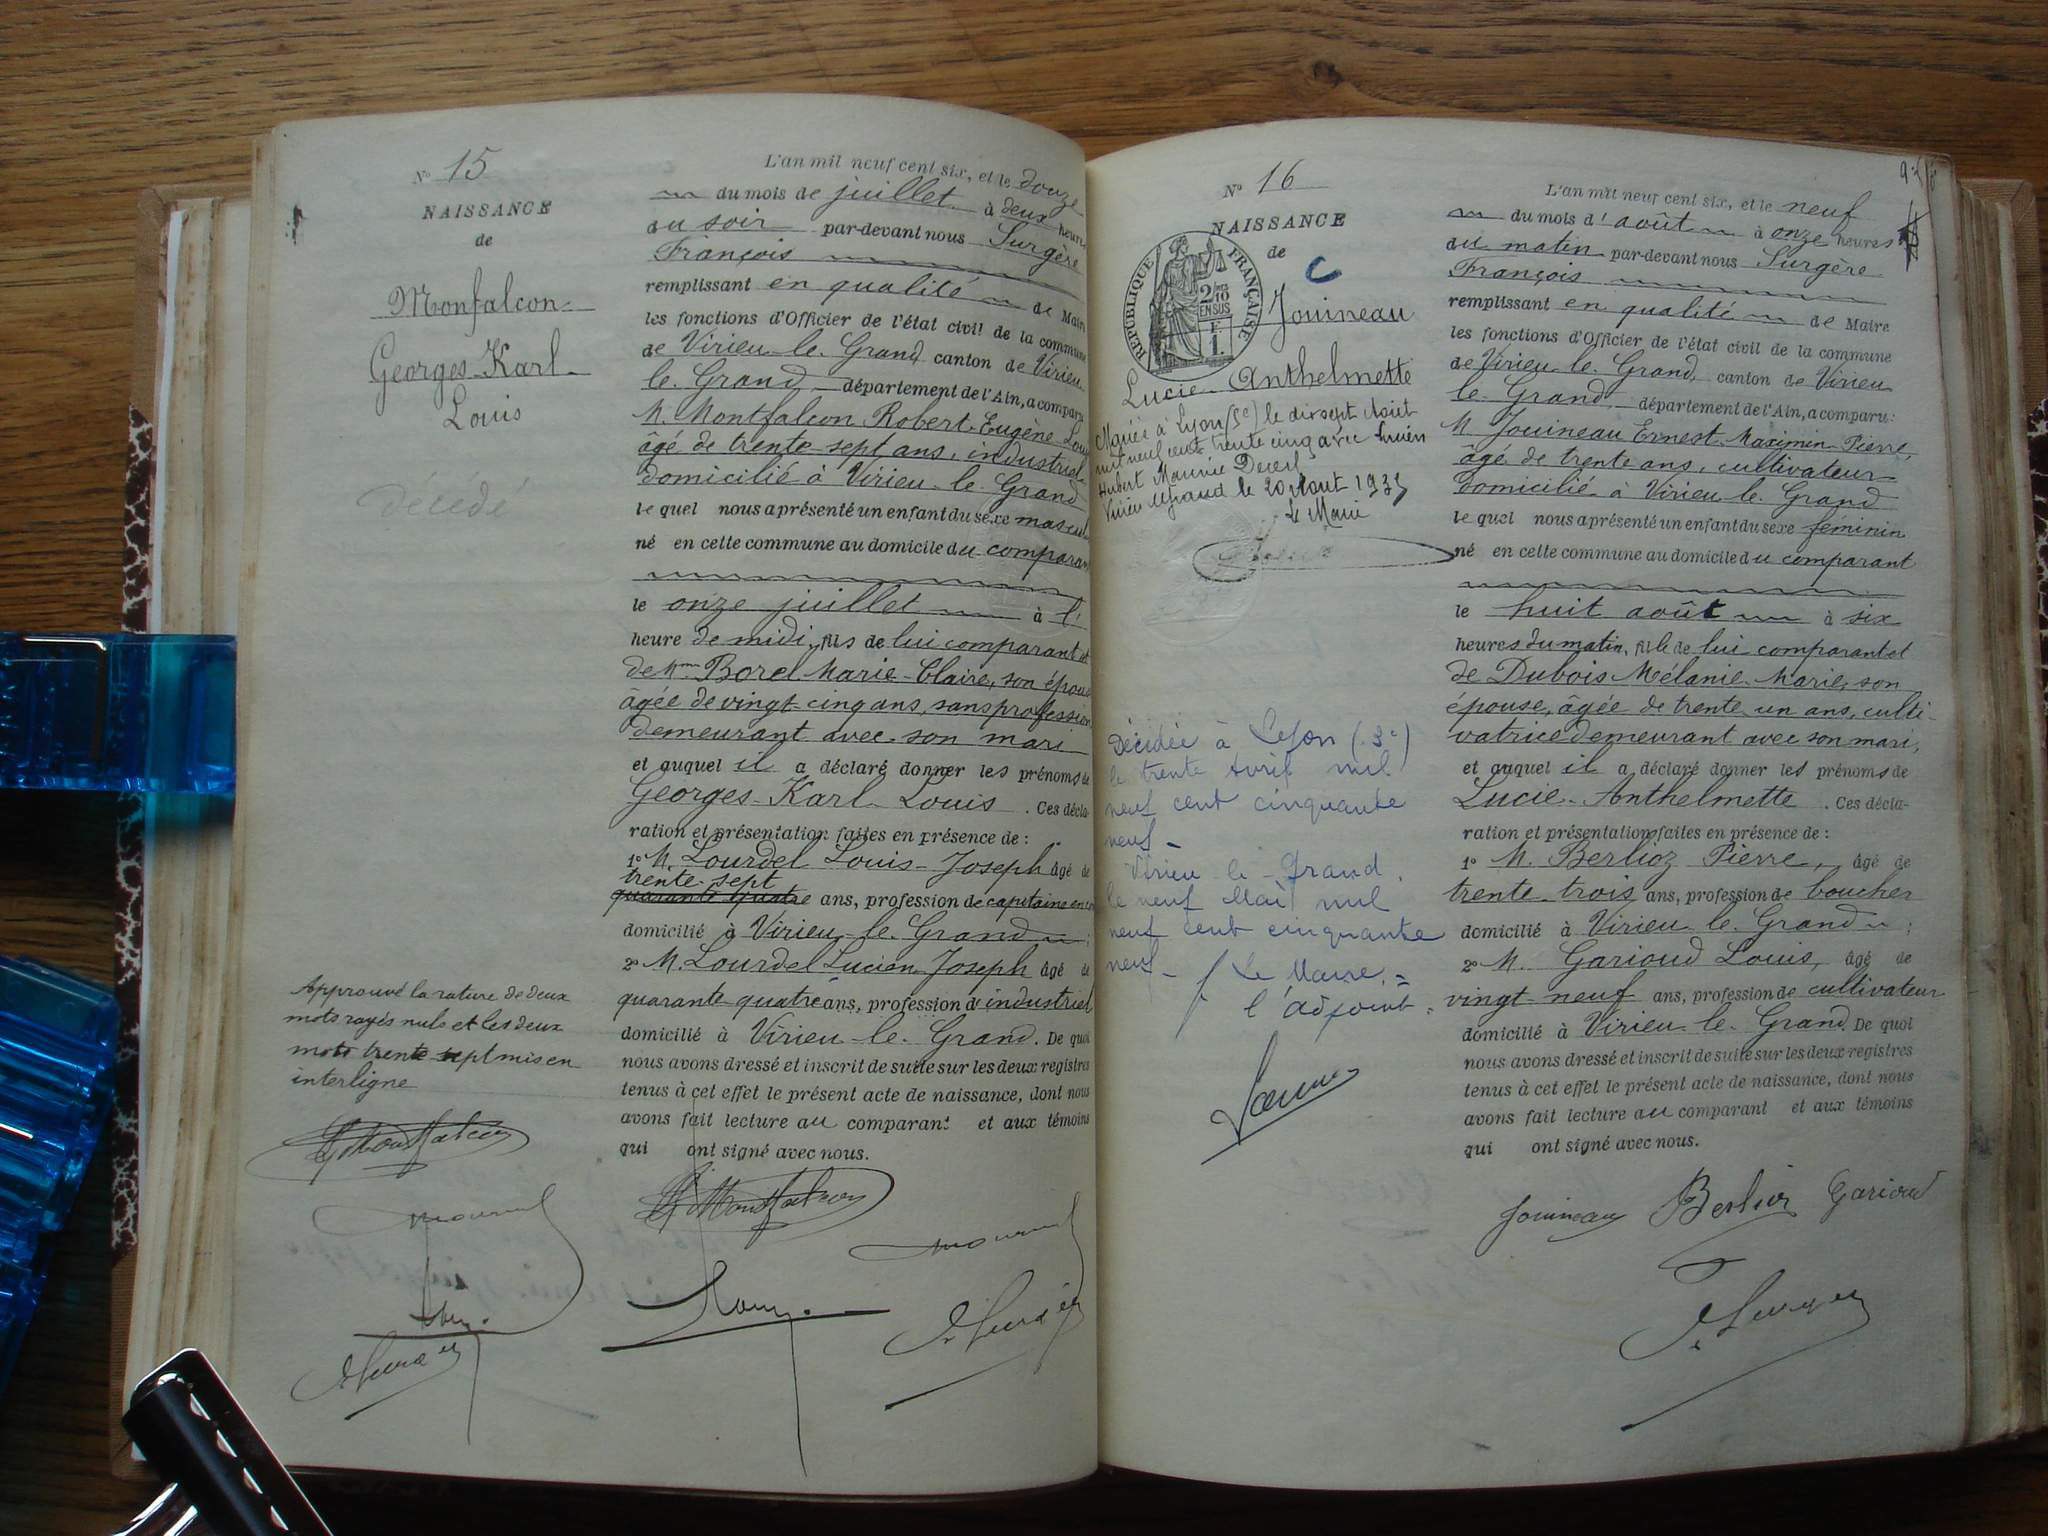 No 15
NAISSANCE
de
Monfalcon
Georges-Karl-
Louis
décédé
Approuvé la rature de deux
mots rayés nuls et les deux
mots trente sept mis en
interligne
L'an mil neuf cent six, et le douze
du mois de juillet à deux heures
du soir par-devant nous Surgère
François
remplissant en qualité de Maire
les fonctions d'Officier de l'état civil de la commune
de Virieu-le-Grand canton de Virieu
le-Grand, département de l'Ain, a comparu
M. Montfalcon Robert-Eugène-Louis
âgé de trente-sept ans, industriel
domicilié à Virieu-le-Grand
lequel nous a présenté un enfant du sexe mascul
né en cette commune au domicile du comparant
le onze juillet à l'
heure de midi, fils de lui comparant et
de Mme Borel Marie-Claire, son épouse
âgée de vingt-cinq ans, sans profession
demeurant avec son mari
et auquel il a déclaré donner les prénoms de
Georges-Karl-Louis. Ces décla-
ration et présentation faites en présence de :
1o M. Lourdel Louis-Joseph âgé de
trente-sept
quarante quatre ans, profession de capitaine en
domicilié à Virieu-le-Grand ;
2o M. Lourdel Lucien-Joseph âgé de
quarante-quatre ans, profession d'industriel
domicilié à Virieu-le-Grand. De quoi
nous avons dressé et inscrit de suite sur les deux registres
tenus à cet effet le présent acte de naissance, dont nous
avons fait lecture au comparant et aux témoins
qui ont signé avec nous.
No 16
NAISSANCE
de
C
RÉPUBLIQUE FRANÇAISE
2/10
EN SUS
F.
1.
Jouineau
Lucie-Anthelmette
Mariée à Lyon (5e) le dix sept Août
mil neuf cent trente cinq avec Lucien
Hubert Maurice
Virieu le Grand le 20 Août 1935
Le Maire
Décédée à Lyon (3e)
le trente Avril mil
neuf cent cinquante
neuf-
Virieu-le-Grand,
le neuf Mai mil
neuf cent cinquante
neuf-
Le Maire,
l'adjoint.
L'an mil neuf cent six, et le neuf
du mois d'août à onze heures
du matin par-devant nous Surgère
François
remplissant en qualité de Maire
les fonctions d'Officier de l'état civil de la commune
de Virieu-le-Grand, canton de Virieu
le-Grand, département de l'Ain, a comparu :
M. Jouineau Ernest-Maximin-Pierre,
âgé de trente ans, cultivateur
domicilié à Virieu-le-Grand
lequel nous a présenté un enfant du sexe féminin
né en cette commune au domicile du comparant
le huit août à six
heures du matin, fille de lui comparant et
de Dubois Mélanie-Marie, son
épouse, âgée de trente-un ans, culti-
vatrice demeurant avec son mari,
et auquel il a déclaré donner les prénoms de
Lucie-Anthelmette. Ces décla-
ration et présentation faites en présence de :
1o M. Berlioz Pierre, âgé de
trente-trois ans, profession de boucher
domicilié à Virieu-le-Grand ;
2o M. Garioud Louis, âgé de
vingt-neuf ans, profession de cultivateur
domicilié à Virieu-le-Grand. De quoi
nous avons dressé et inscrit de suite sur les deux registres
tenus à cet effet le présent acte de naissance, dont nous
avons fait lecture au comparant et aux témoins
qui ont signé avec nous.
Jouineau Berlioz Garioud